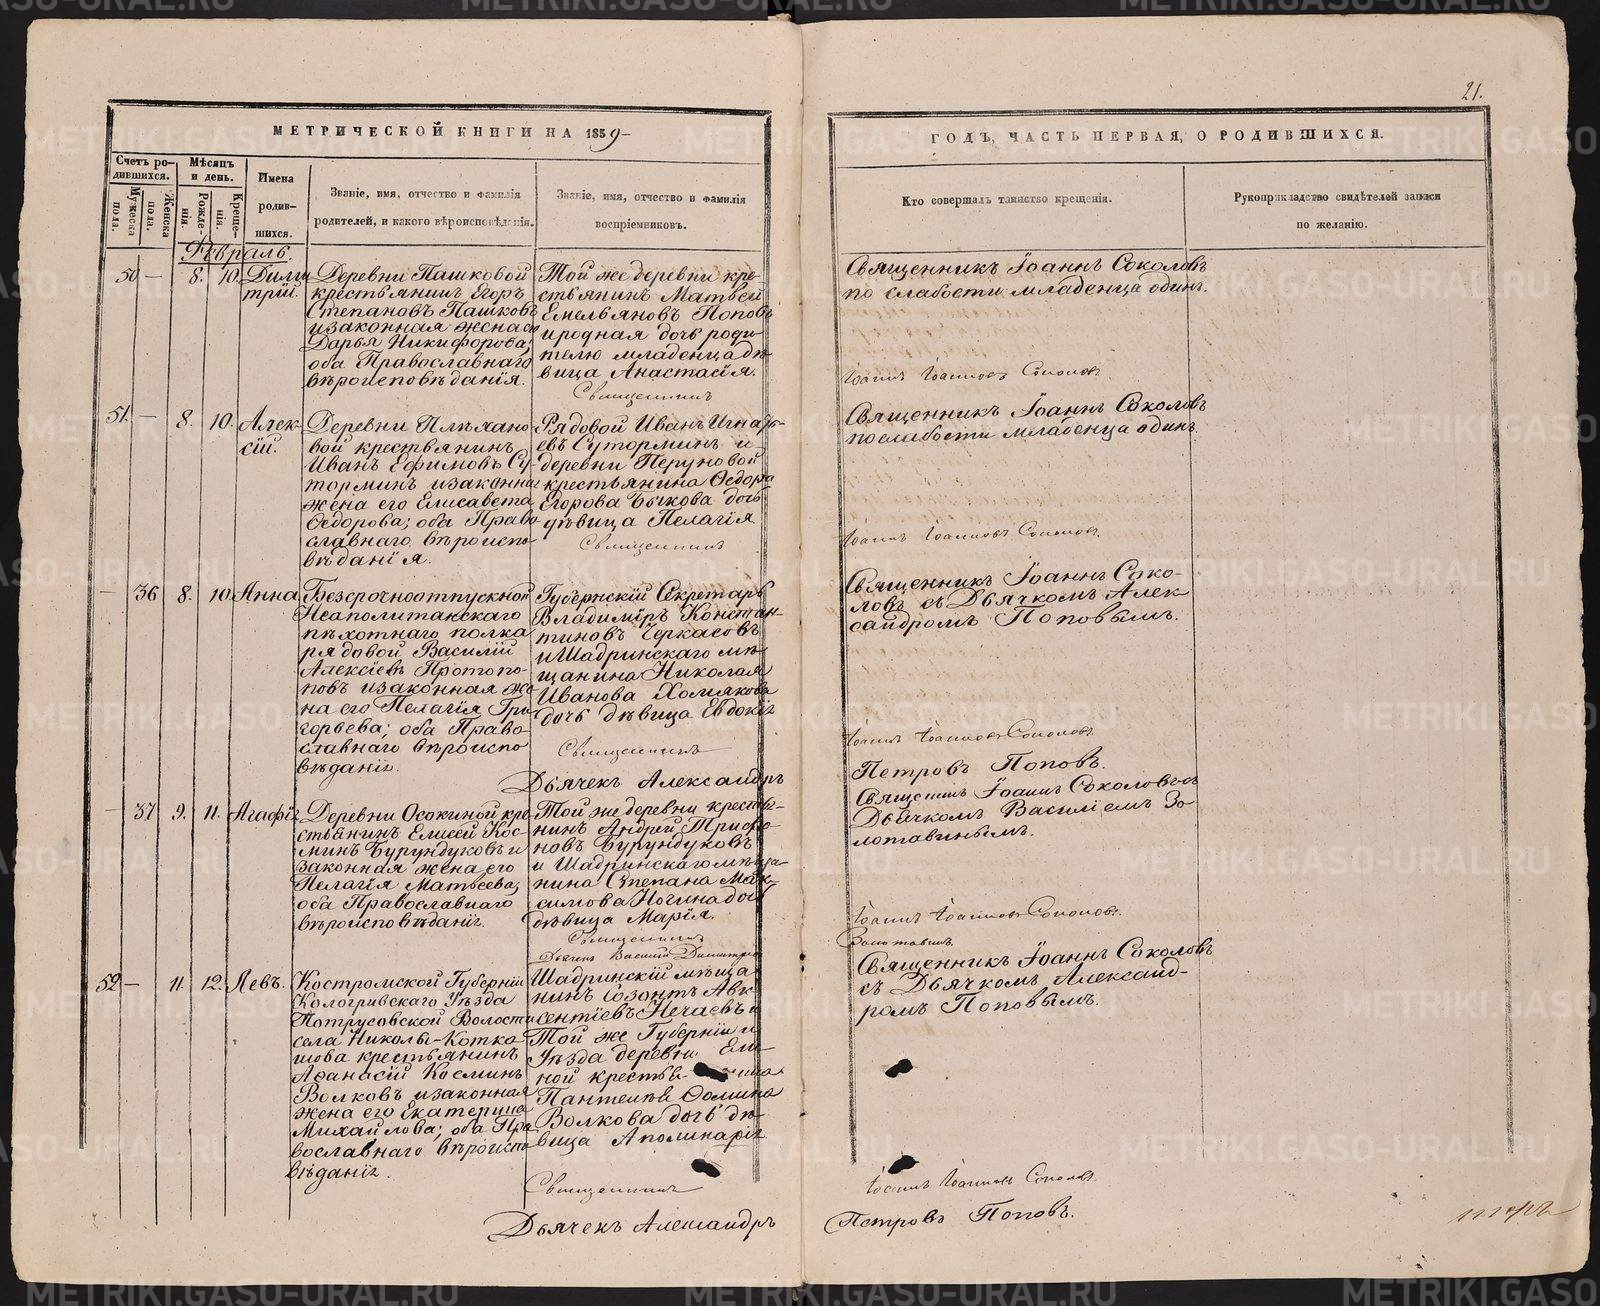 21.
МЕТРИЧЕСКОЙ КНИГИ НА 1859
ГОДЪ, ЧАСТЬ ПЕРВАЯ, О РОДИВШИХСЯ.
Счетъ ро-
дившихся.
Мужеска
пола.
Женска
пола.
Мѣсяцъ
и день.
Рожде-
нія.
Креще-
нія.
Имена
родив-
шихся.
Званіе, имя, отчество и фамилія
родителей, и какого вѣроисповѣданія.
Званіе, имя, отчество и фамилія
воспріемниковъ.
Кто совершалъ таинство крещенія.
Рукоприкладство свидѣтелей записи
по желанію.
Февраль.
50 — 8. 10. Дими
трій.
Деревни Пашковой
крестьянинъ Егоръ
Степановъ Пашковъ
и законная жена его
Дарья Никифорова;
оба Православнаго
вѣроисповѣданія.
Той же деревни кре-
стьянинъ Матвей
Емельяновъ Поповъ
и родная дочь роди
телю младенца дѣ
вица Анастасія.
Священникъ
Священникъ Іоаннъ Соколовъ
по слабости младенца одинъ.
Іоаннъ Іоанновъ Соколовъ.
51. — 8. 10. Алек-
сій.
Деревни Плѣхано
вой крестьянинъ
Иванъ Ефимовъ Су-
торминъ и законная
жена его Елисавета
Ѳедорова; оба Право
славнаго вѣроиспо
вѣданія.
Рядовой Иванъ Игнать-
евъ Суторминъ и
деревни Перуновой
крестьянина Ѳедора
Егорова Быкова дочь
дѣвица Пелагія
Священникъ
Священникъ Іоаннъ Соколовъ
по слабости младенца одинъ.
Іоаннъ Іоанновъ Соколовъ.
— 36 8. 10 Анна
Безсрочноотпускной
Неаполитанскаго
пѣхотнаго полка
рядовой Василій
Алексіевъ Протопо-
повъ и законная же
на его Пелагія Гри
горьева; оба Право-
славнаго вѣроиспо
вѣданія.
Губернскій Секретарь
Владиміръ Констан-
тиновъ Черкасовъ
и Шадринскаго мѣ
щанина Николая
Иванова Холмякова
дочь дѣвица Евдокія
Священникъ
Дьячекъ Александръ
Священникъ Іоаннъ Соко-
ловъ съ Дьячкомъ Алек
сандромъ Поповымъ.
Іоаннъ Іоанновъ Соколовъ
Петровъ Поповъ.
— 37 9. 11. Агафія
Деревни Осокиной кре
стьянинъ Елисей Кос-
минъ Бурундуковъ и
законная жена его
Пелагія Матвеева;
оба Православнаго
вѣроисповѣданія.
Той же деревни крестья-
нинъ Андрей Трифо-
новъ Бурундуковъ
и Шадринскаго мѣща-
нина Степана Мак-
симова Ногина дочь
дѣвица Марія.
Священникъ
Дьячекъ Василій Димитріевъ
Священникъ Іоаннъ Соколовъ съ
Дьячкомъ Василіемъ Зо
лотавинымъ.
Іоаннъ Іоанновъ Соколовъ.
Золотавинъ.
52 — 11. 12. Левъ.
Костромской Губерніи
Кологривскаго Уѣзда
Потрусовской Волости
села Николы-Котка
шова крестьянинъ
Аѳанасій Косминъ
Волковъ и законная
жена его Екатерина
Михайлова; оба Пра
вославнаго вѣроиспо
вѣданія.
Шадринскій мѣща
нинъ Созонтъ Авк
сентіевъ Нечаевъ и
Той же Губерніи и
Уѣзда деревни
ной
Пантелея Ѳомина
Волкова дочь дѣ-
вица Аполинарія
Священникъ
Дьячекъ Александръ
Священникъ Іоаннъ Соколовъ
съ Дьячкомъ Александ-
ромъ Поповымъ.
Іоаннъ Іоанновъ Соколовъ.
Петровъ Поповъ.
METRIKI.GASO-URAL.RU